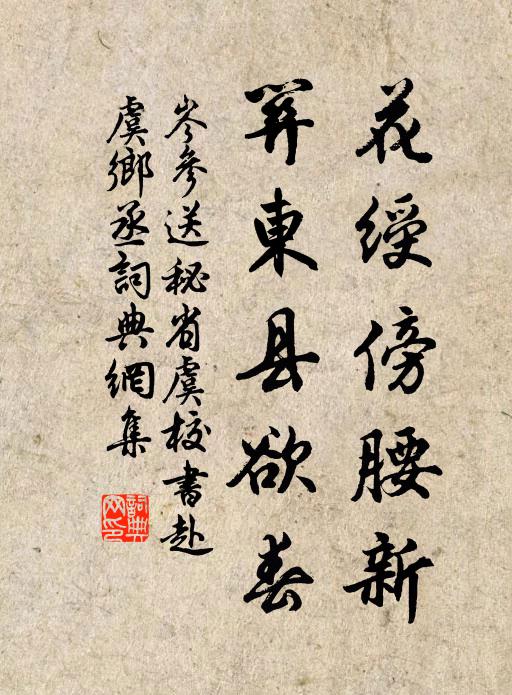 花綬傍腰新
關東县欲春
岑參送秘省虞校書赴
虞鄉丞詞典網集
詞典
网印